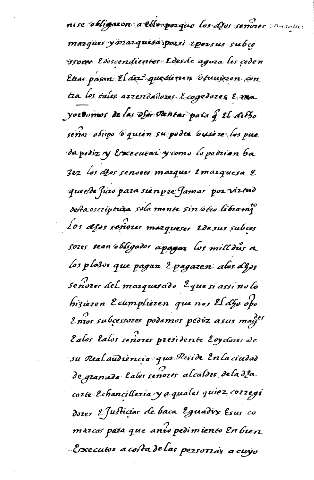 nise obligaron a ello porque los dhos señores
marques y marquesa por si e por sus subce
ssores e descendientes e desde agora les ceden
tra los tales arrendadores e cogedores e ma
yordomos de las dhas Rentas para q El dicho
señor obispo o quien su poder oviere los pue
da pedir y Executar y como lo podrian ha
zer los dhos señores marques e marquesa e
que de Juro para sienpre Jamas por virtud
desta escriptura sola mente sin otro libramio
Los dhos señores marqueses e de sus subces
sores sean obligados a pagar los mill dus a
los plazos que pagan e pagaren a los dhos
señores del marquesado E que si assi no lo
hizieren e cumplieren que nos El dho opo
E nros subcessores podamos pedir a sus magdes
E a los E a los señores presidente E oydores de
su Real audiencia que Reside En la ciudad
de granada E a los señores alcaldes de la dha
corte E chancilleria y a quales quier corregi
dores E Justicias de baca E guadix E sus co
marcas para que a nro pedimiento Entren
Executor a costa de las personas a cuyo